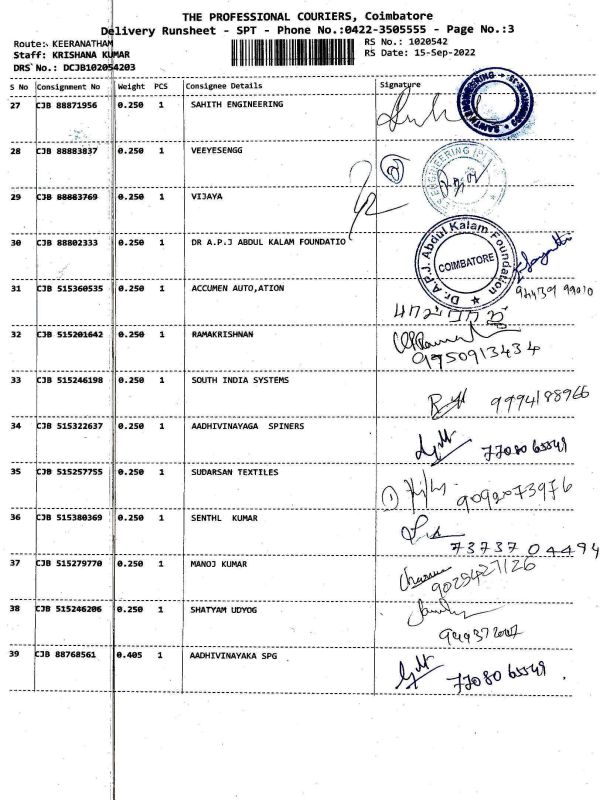 THE PROFESSIONAL COURIERS, Coimbatore
Delivery Runsheet - SPT - Phone No.:0422-3505555 - Page No.:3
Route: KEERANATHAM
RS No.: 1020542
Staff: KRISHANA KUMAR
RS Date: 15-Sep-2022
DRS No.: DCJB102054203
S No Consignment No Weight PCS Consignee Details Signature
27 CJB 88871956 0.250 1 SAHITH ENGINEERING
28 CJB 88883837 0.250 1 VEEYESENGG
ENGINEERING
29 CJB 88883769 0.250 1 VIJAYA
30 CJB 88802333 0.250 1 DR A.P.J ABDUL KALAM FOUNDATIO
Dr. A.P.J. Abdul Kalam Foundation
COIMBATORE
31 CJB 515360535 0.250 1 ACCUMEN AUTO,ATION
32 CJB 515201642 0.250 1 RAMAKRISHNAN
9750913434
33 CJB 515246198 0.250 1 SOUTH INDIA SYSTEMS
9994188966
34 CJB 515322637 0.250 1 AADHIVINAYAGA SPINERS
77080 65549
35 CJB 515257755 0.250 1 SUDARSAN TEXTILES
9092073976
36 CJB 515380369 0.250 1 SENTHL KUMAR
73737 04494
37 CJB 515279770 0.250 1 MANOJ KUMAR
9025427126
38 CJB 515246206 0.250 1 SHATYAM UDYOG
39 CJB 88768561 0.405 1 AADHIVINAYAKA SPG
77080 65549